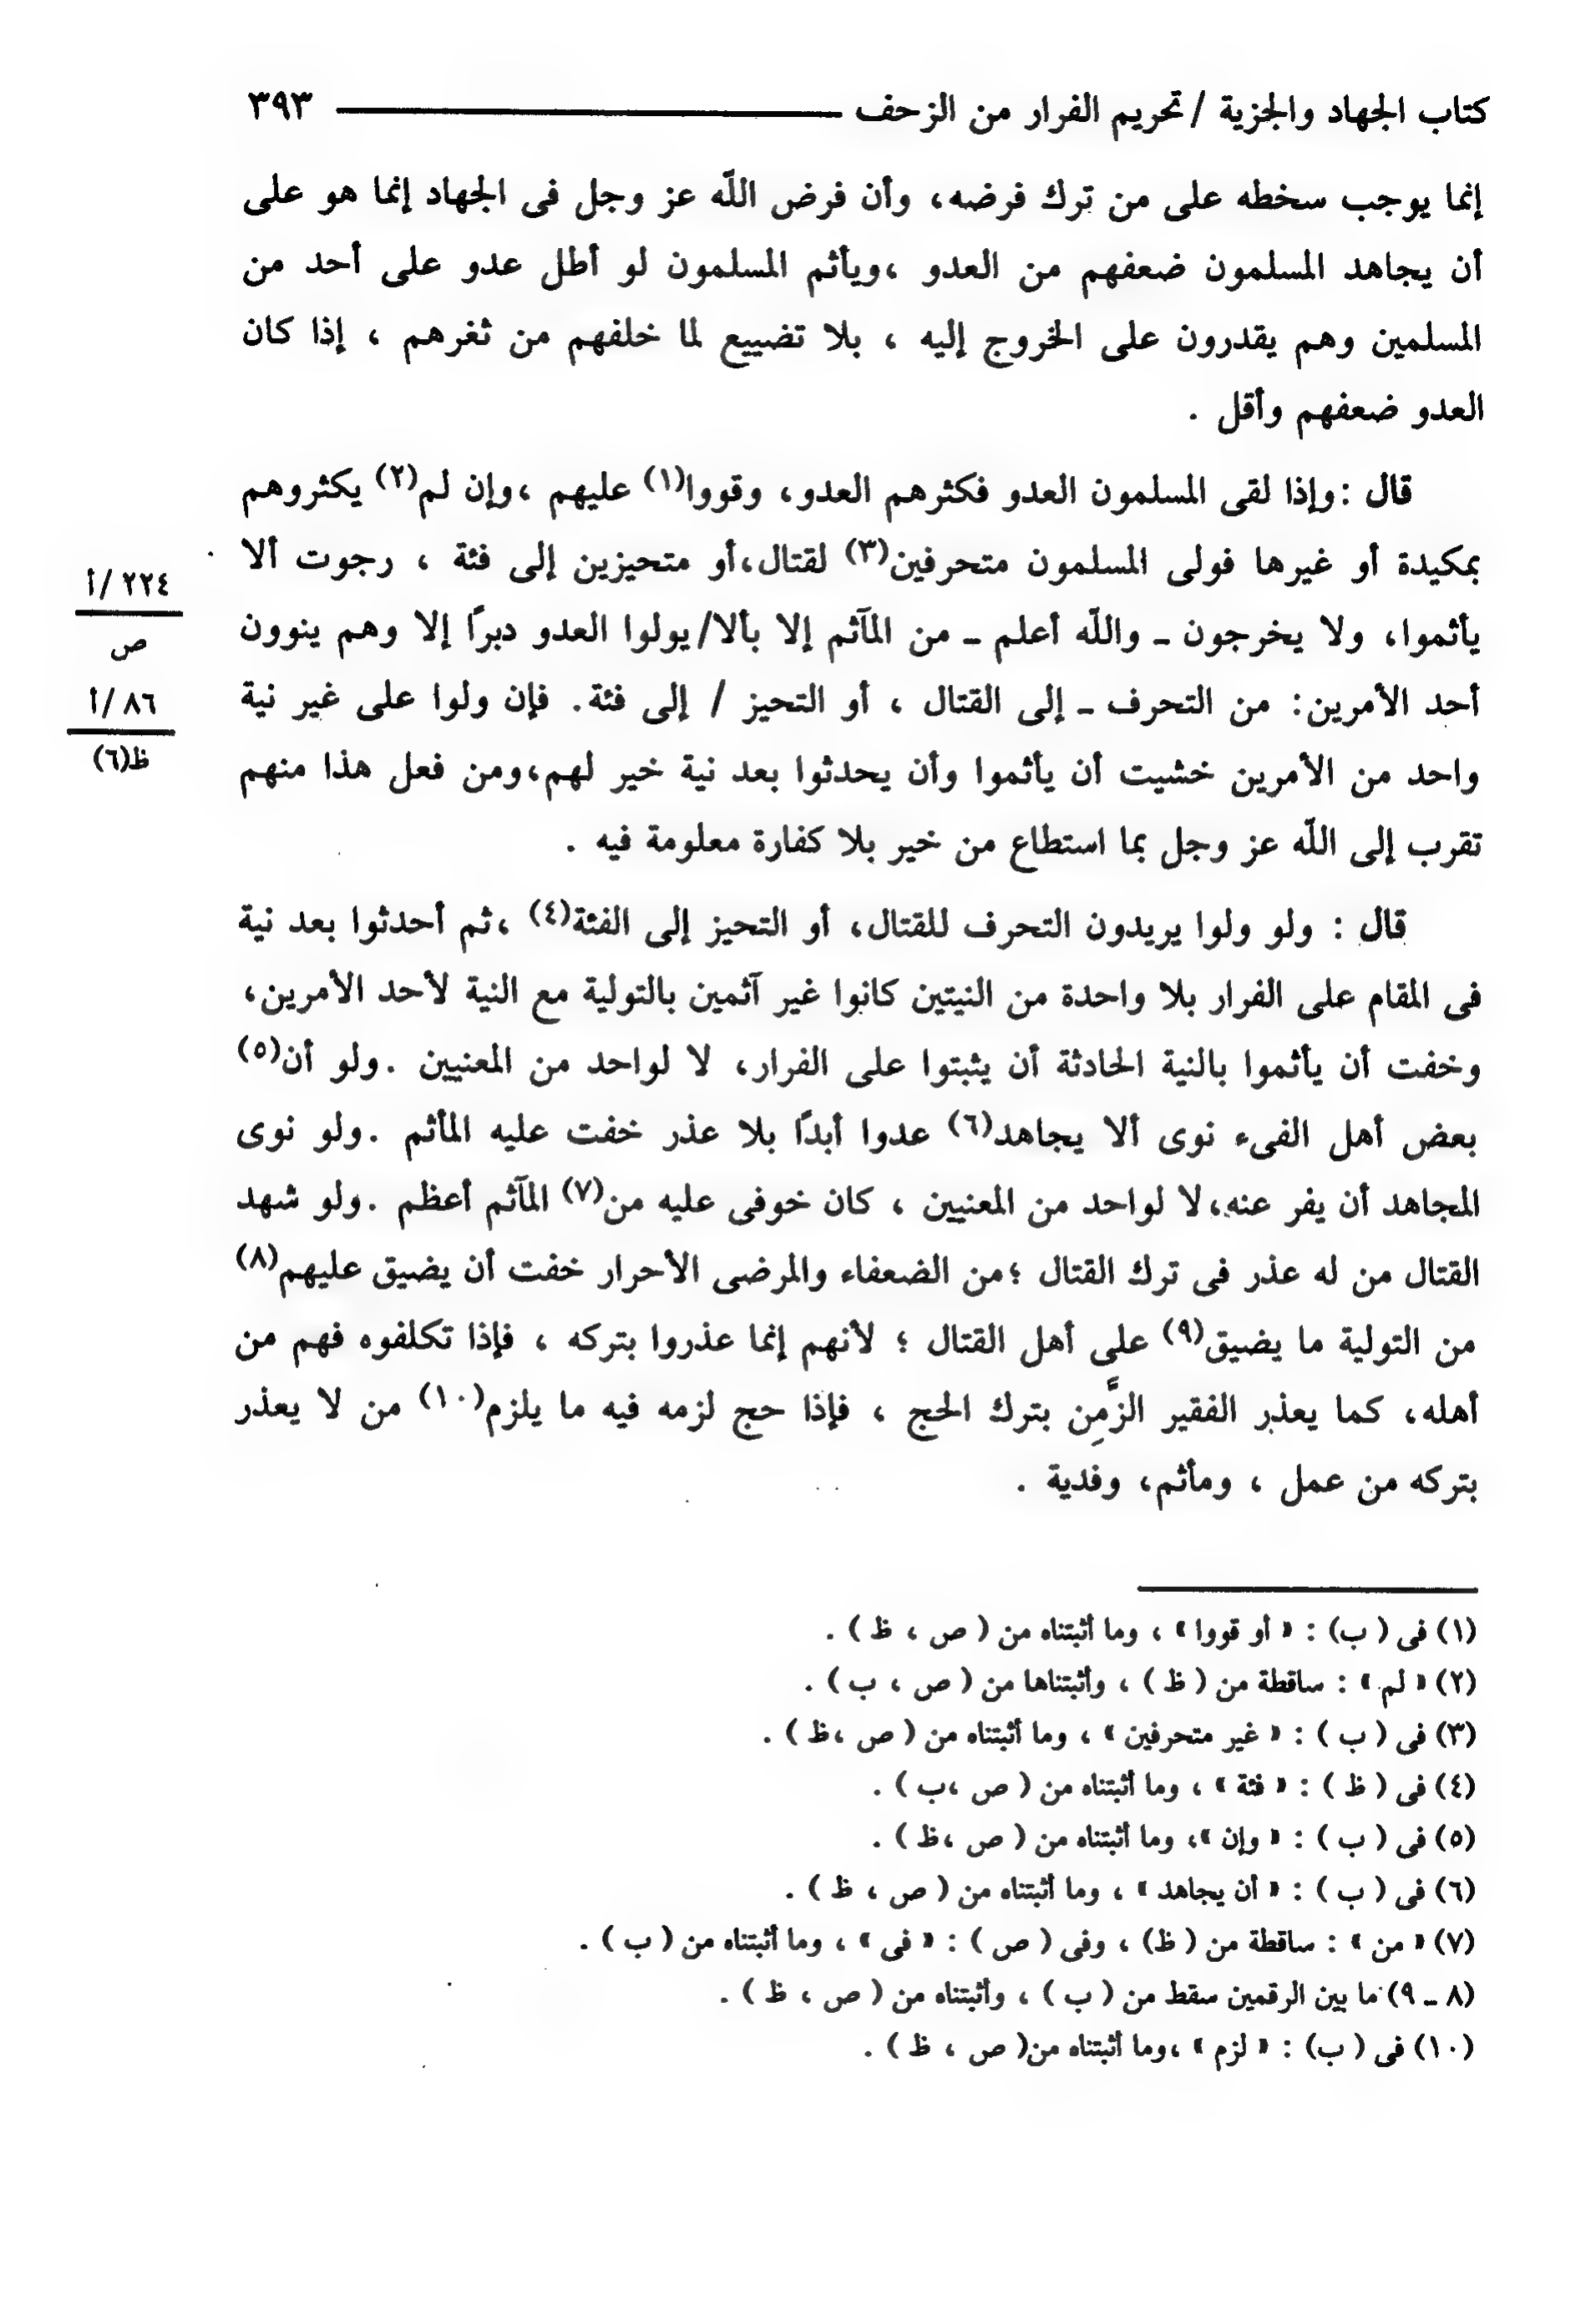 كتاب الجهاد والجزية / تحريم الفرار من الزحف ــــــــــ ٣٩٣
إنما يوجب سخطه على من ترك فرضه، وأن فرض اللّه عز وجل فى الجهاد إنما هو على
أن يجاهد المسلمون ضعفهم من العدو ،ويأثم المسلمون لو أطل عدو على أحد من
المسلمين وهم يقدرون على الخروج إليه ، بلا تضييع لما خلفهم من ثغرهم ، إذا كان
العدو ضعفهم وأقل .
قال :وإذا لقى المسلمون العدو فكثرهم العدو، وقووا(١) عليهم ،وإن لم(٢) يكثروهم
بمكيدة أو غيرها فولى المسلمون متحرفين(٣) لقتال،أو متحيزين إلى فئة ، رجوت ألا
يأثموا، ولا يخرجون ـ واللّه أعلم ـ من المآثم إلا بألا/يولوا العدو دبرًا إلا وهم ينوون
أحد الأمرين: من التحرف ـ إلى القتال ، أو التحيز / إلى فئة. فإن ولوا على غير نية
واحد من الأمرين خشيت أن يأثموا وأن يحدثوا بعد نية خير لهم،ومن فعل هذا منهم
تقرب إلى اللّه عز وجل بما استطاع من خير بلا كفارة معلومة فيه .
٢٢٤ /أ
ص
٨٦ /أ
ظ(٦)
قال : ولو ولوا يريدون التحرف للقتال، أو التحيز إلى الفئة(٤) ،ثم أحدثوا بعد نية
فى المقام على الفرار بلا واحدة من النيتين كانوا غير آثمين بالتولية مع النية لأحد الأمرين،
وخفت أن يأثموا بالنية الحادثة أن يثبتوا على الفرار، لا لواحد من المعنيين .ولو أن(٥)
بعض أهل الفىء نوى ألا يجاهد(٦) عدوا أبدًا بلا عذر خفت عليه المأثم .ولو نوى
المجاهد أن يفر عنه،لا لواحد من المعنيين ، كان خوفى عليه من(٧) المآثم أعظم .ولو شهد
القتال من له عذر فى ترك القتال ؛من الضعفاء والمرضى الأحرار خفت أن يضيق عليهم(٨)
من التولية ما يضيق(٩) على أهل القتال ؛ لأنهم إنما عذروا بتركه ، فإذا تكلفوه فهم من
أهله، كما يعذر الفقير الزَّمِن بترك الحج ، فإذا حج لزمه فيه ما يلزم(١٠) من لا يعذر
بتركه من عمل ، ومأثم، وفدية .
(١) فى ( ب) : « أو قووا » ، وما أثبتناه من ( ص ، ظ ) .
(٢) « لم » : ساقطة من ( ظ ) ، وأثبتناها من ( ص ، ب ) .
(٣) فى ( ب ) : « غير متحرفين » ، وما أثبتناه من ( ص ،ظ ) .
(٤) فى ( ظ ) : « فئة » ، وما أثبتناه من ( ص ،ب ) .
(٥) فى ( ب ) : « وإن »، وما أثبتناه من ( ص ،ظ ) .
(٦) فى ( ب ) : « أن يجاهد » ، وما أثبتناه من ( ص ، ظ ) .
(٧) « من » : ساقطة من ( ظ) ، وفى ( ص ) : « فى » ، وما أثبتناه من ( ب ) .
(٨ ـ ٩) ما بين الرقمين سقط من ( ب ) ، وأثبتناه من ( ص ، ظ ) .
(١٠) فى ( ب) : « لزم » ،وما أثبتناه من( ص ، ظ ) .